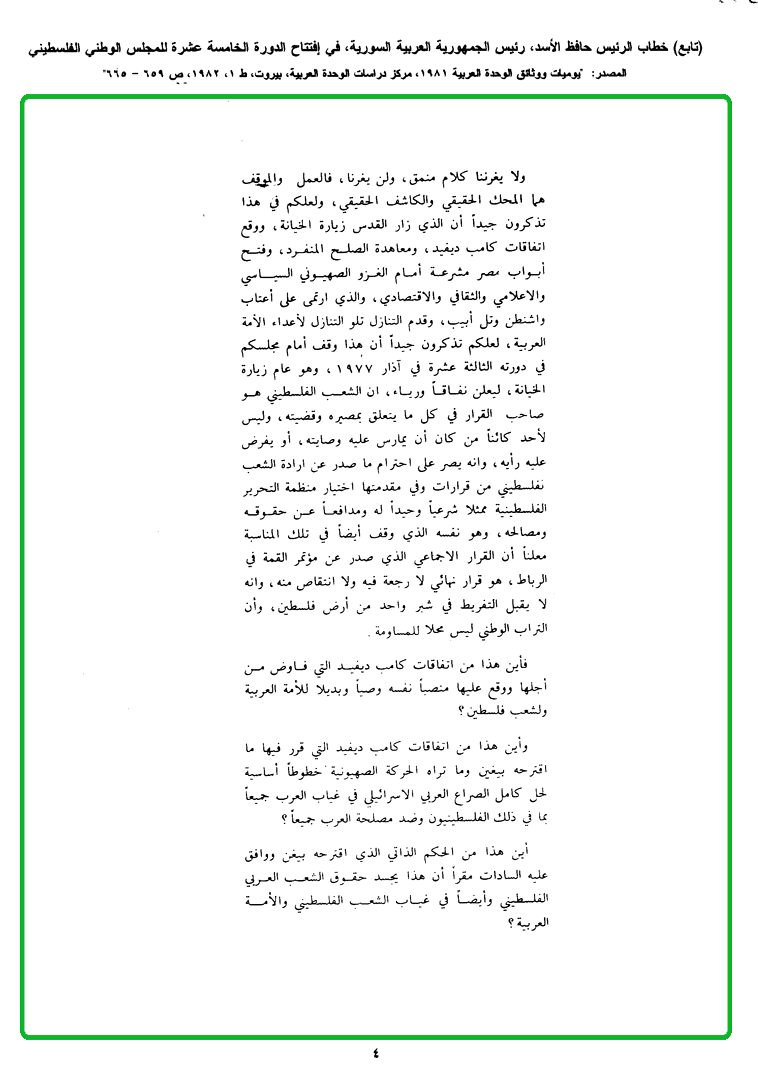 (تابع) خطاب الرئيس حافظ الأسد، رئيس الجمهورية العربية السورية، في إفتتاح الدورة الخامسة عشرة للمجلس الوطني الفلسطيني
المصدر: "يوميات ووثائق الوحدة العربية ١٩٨١، مركز دراسات الوحدة العربية، بيروت، ط ١، ١٩٨٢، ص ٦٥٩ - ٦٦٥"
ولا يغرننا كلام منمق، ولن يغرنا، فالعمل والموقف
هما المحك الحقيقي والكاشف الحقيقي، ولعلكم في هذا
تذكرون جيداً أن الذي زار القدس زيارة الخيانة، ووقع
اتفاقات كامب ديفيد، ومعاهدة الصلح المنفرد، وفتح
أبواب مصر مشرعة أمام الغزو الصهيوني السياسي
والاعلامي والثقافي والاقتصادي، والذي ارتمى على أعتاب
واشنطن وتل أبيب، وقدم التنازل تلو التنازل لأعداء الأمة
العربية، لعلكم تذكرون جيداً أن هذا وقف أمام مجلسكم
في دورته الثالثة عشرة في آذار ١٩٧٧، وهو عام زيارة
الخيانة، ليعلن نفاقاً ورياء، ان الشعب الفلسطيني هو
صاحب القرار في كل ما يتعلق بمصيره وقضيته، وليس
لأحد كائناً من كان أن يمارس عليه وصايته، أو يفرض
عليه رأيه، وانه يصر على احترام ما صدر عن ارادة الشعب
نفلسطيني من قرارات وفي مقدمتها اختيار منظمة التحرير
الفلسطينية ممثلا شرعياً وحيداً له ومدافعاً عن حقوقه
ومصالحه، وهو نفسه الذي وقف أيضاً في تلك المناسبة
معلناً أن القرار الاجماعي الذي صدر عن مؤتمر القمة في
الرباط، هو قرار نهائي لا رجعة فيه ولا انتقاص منه، وانه
لا يقبل التفريط في شبر واحد من أرض فلسطين، وأن
التراب الوطني ليس محلا للمساومة.
فأين هذا من اتفاقات كامب ديفيد التي فاوض من
أجلها ووقع عليها منصباً نفسه وصياً وبديلا للأمة العربية
ولشعب فلسطين؟
وأين هذا من اتفاقات كامب ديفيد التي قرر فيها ما
اقترحه بيغين وما تراه الحركة الصهيونية خطوطاً أساسية
لحل كامل الصراع العربي الاسرائيلي في غياب العرب جميعاً
بما في ذلك الفلسطينيون وضد مصلحة العرب جميعاً؟
أين هذا من الحكم الذاتي الذي اقترحه بيغن ووافق
عليه السادات مقراً أن هذا يجسد حقوق الشعب العربي
الفلسطيني وأيضاً في غياب الشعب الفلسطيني والأمة
العربية؟
٤